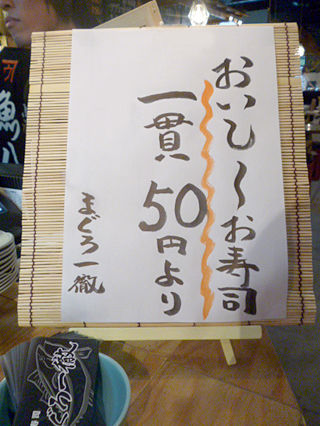 おいし〜お寿司
一貫 50円より
まぐろ一徹